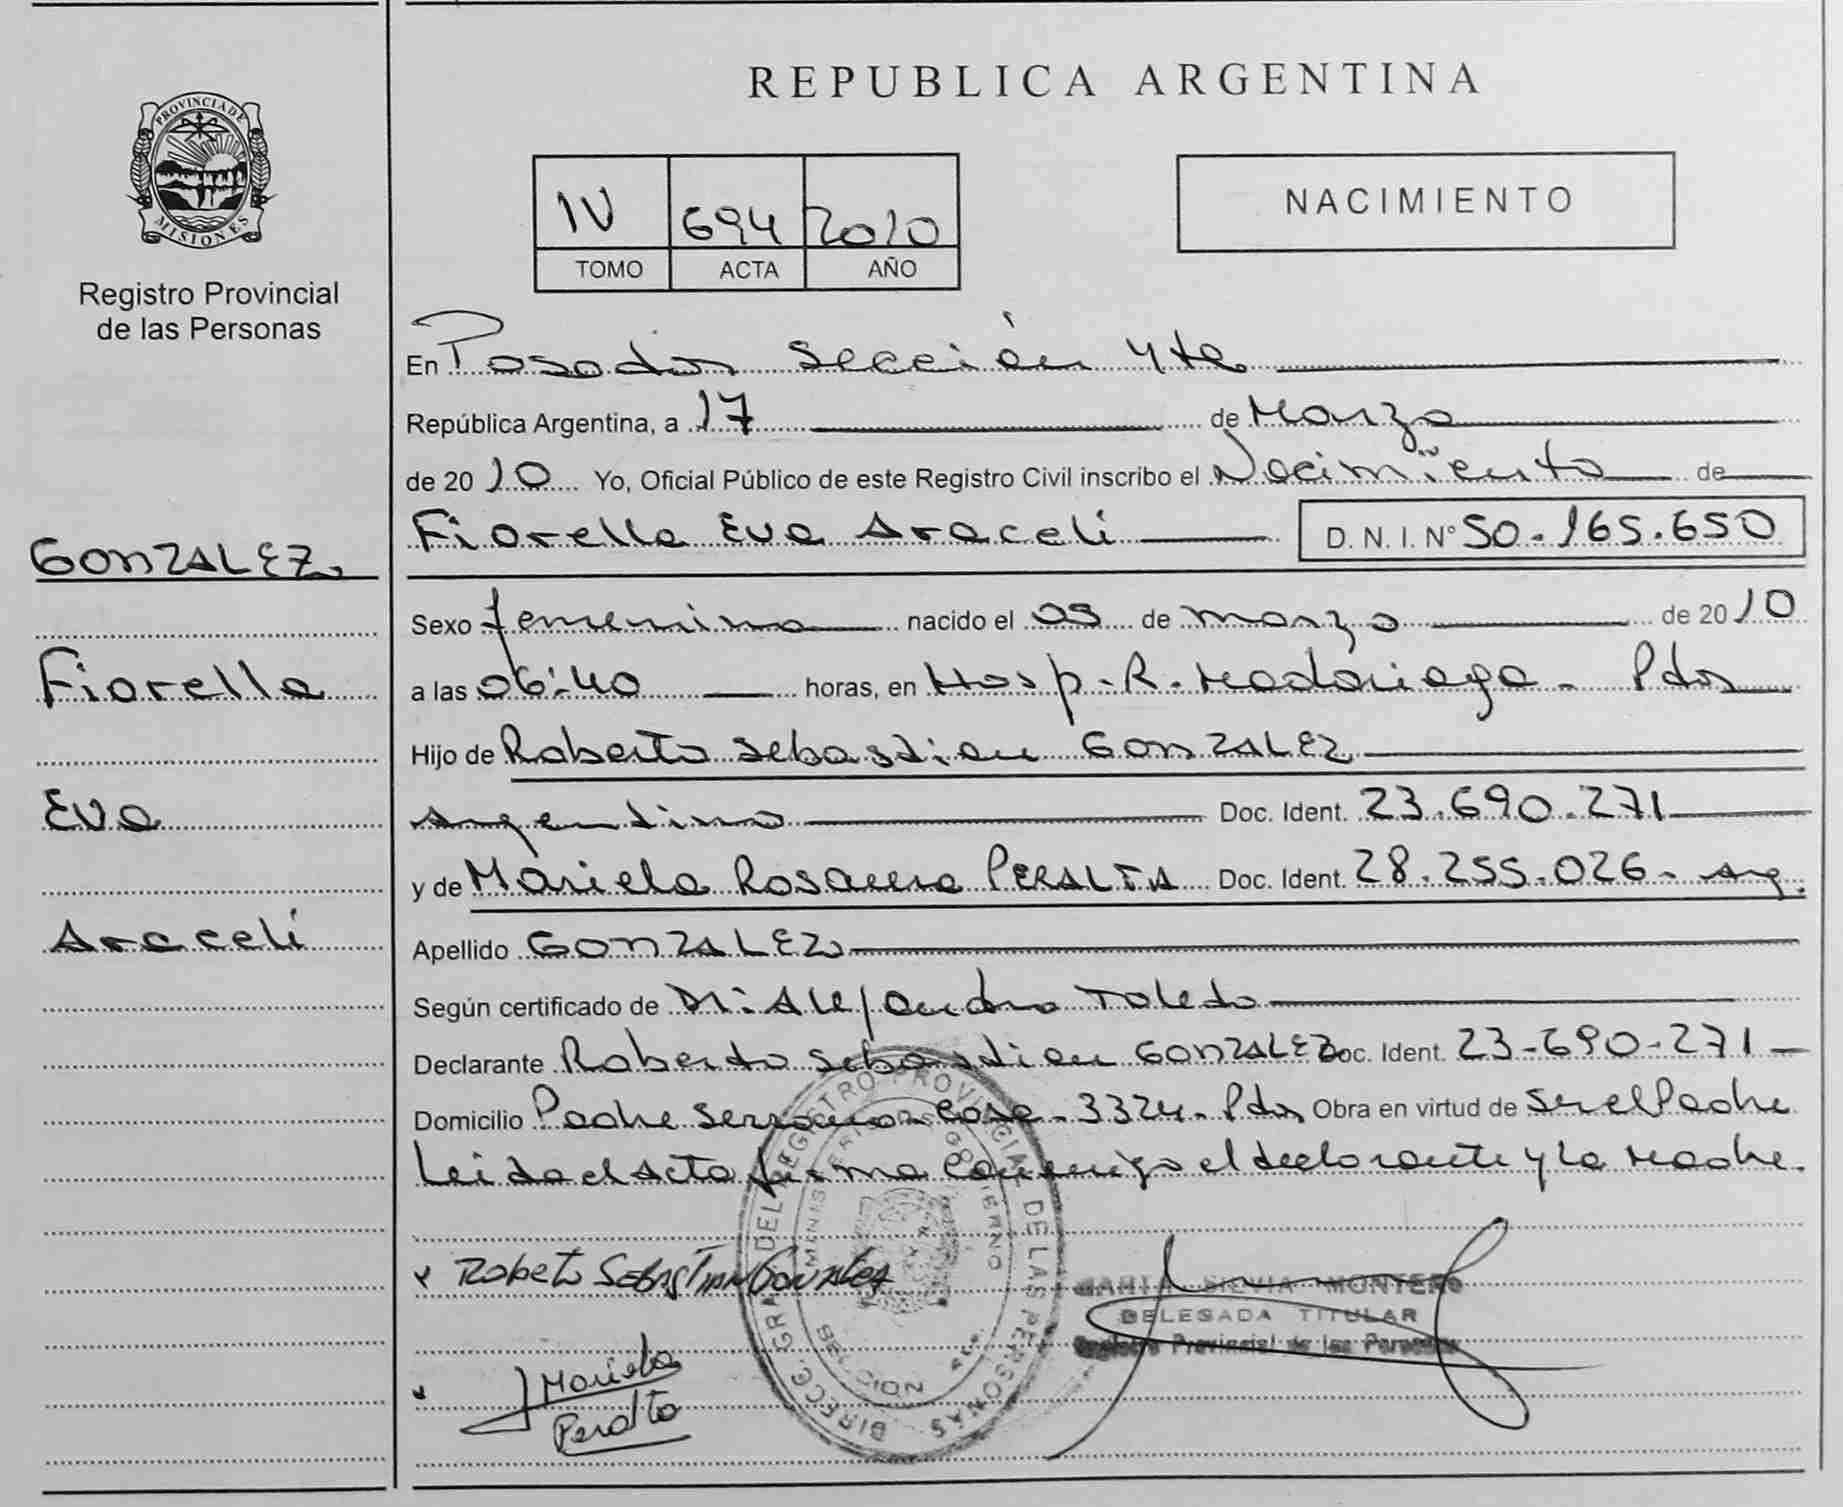 PROVINCIA DE
MISIONES
Registro Provincial
de las Personas
GONZALEZ
Fiorella
Eva
Araceli
REPUBLICA ARGENTINA
IV 694 2010
TOMO ACTA AÑO
NACIMIENTO
En Posadas Sección 4ta
República Argentina, a 17 de Marzo
de 2010 Yo, Oficial Público de este Registro Civil inscribo el Nacimiento de
Fiorella Eva Araceli D. N. I. N° 50.165.650
Sexo femenino nacido el 09 de marzo de 2010
a las 06:40 horas, en Hosp. R. Madariaga - Pdas
Hijo de Roberto Sebastian GONZALEZ
argentino Doc. Ident. 23.690.271
y de Mariela Rosanna PERALTA Doc. Ident. 28.255.026 - arg.
Apellido GONZALEZ
Según certificado de Dr. Alejandro Toledo
Declarante Roberto Sebastian GONZALEZ Doc. Ident. 23-690-271
Domicilio Padre Serrano Casa - 3324 - Pdas Obra en virtud de ser el Padre
Leida el Acta firma conmigo el declarante y la Madre.
x Robeto SEBASTIAN GONZALEZ
MARIA SILVIA MONTERO
DELEGADA TITULAR
Registro Provincial de las Personas
x Mariela
Peralta
DIRECC. GRAL. DEL REGISTRO PROVINCIAL DE LAS PERSONAS
MINISTERIO DE GOBIERNO